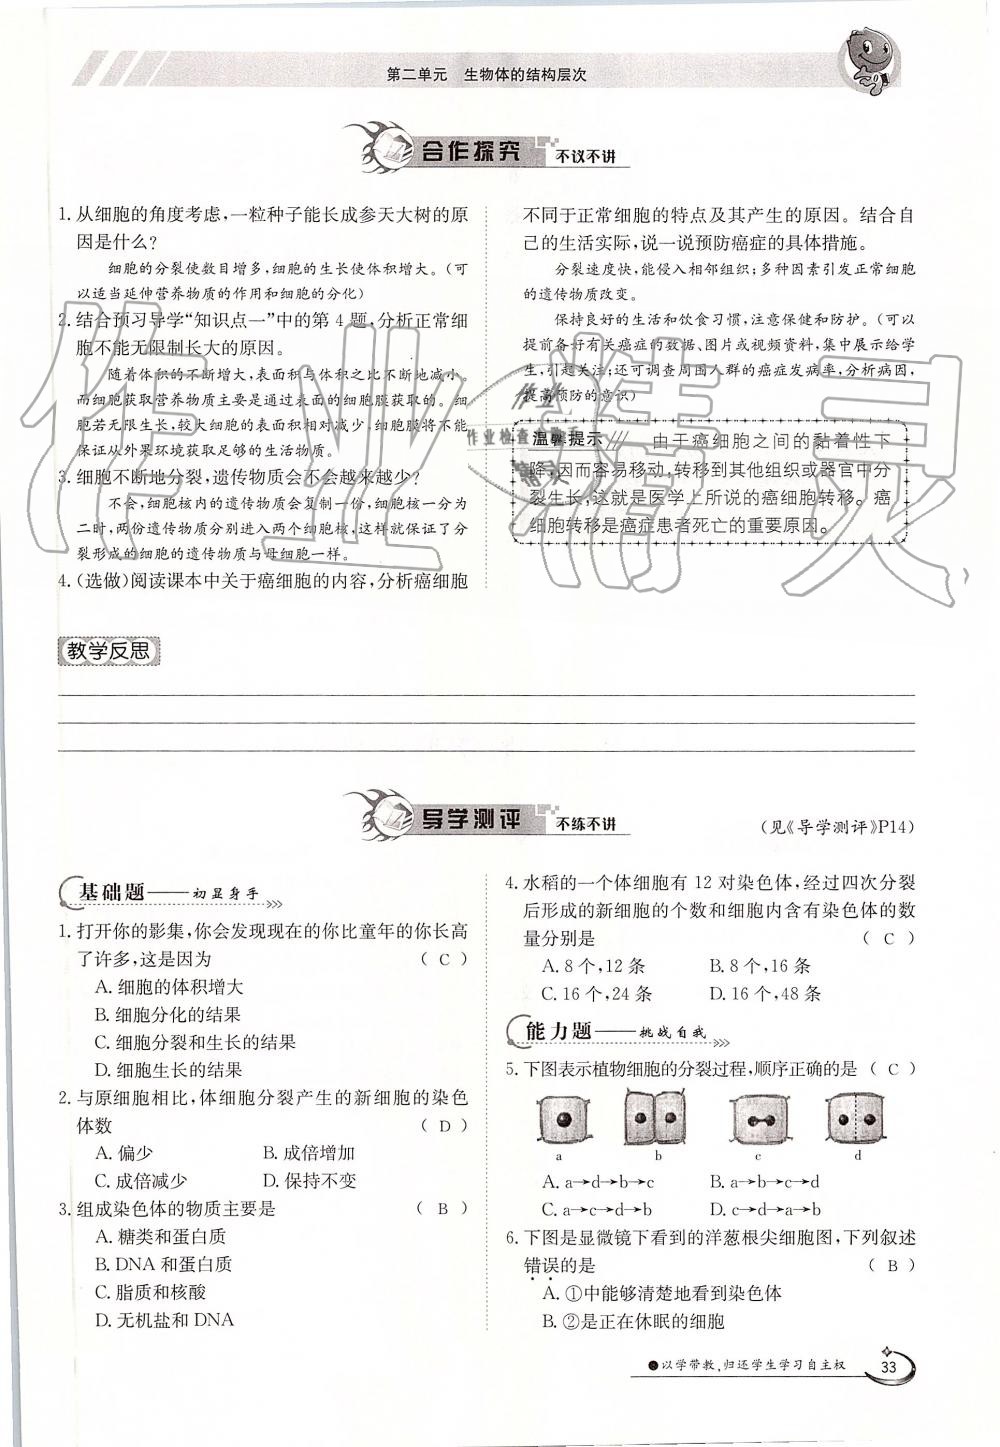 第二单元 生物体的结构层次
合作探究 不议不讲
1. 从细胞的角度考虑,一粒种子能长成参天大树的原
因是什么?
细胞的分裂使数目增多,细胞的生长使体积增大。(可
以适当延伸营养物质的作用和细胞的分化)
2. 结合预习导学“知识点一”中的第 4 题,分析正常细
胞不能无限制长大的原因。
随着体积的不断增大,表面积与体积之比不断地减小。
而细胞获取营养物质主要是通过表面的细胞膜获取的。细
胞若无限生长,较大细胞的表面积相对减少,细胞膜将不能
保证从外果环境获取足够的生活物质。
3. 细胞不断地分裂,遗传物质会不会越来越少?
不会,细胞核内的遗传物质会复制一份,细胞核一分为
二时,两份遗传物质分别进入两个细胞核,这样就保证了分
裂形成的细胞的遗传物质与母细胞一样。
4. (选做)阅读课本中关于癌细胞的内容,分析癌细胞
不同于正常细胞的特点及其产生的原因。结合自
己的生活实际,说一说预防癌症的具体措施。
分裂速度快,能侵入相邻组织;多种因素引发正常细胞
的遗传物质改变。
保持良好的生活和饮食习惯,注意保健和防护。(可以
提前备好有关癌症的数据、图片或视频资料,集中展示给学
生,引起关注;还可调查周围人群的癌症发病率,分析病因,
提高预防的意识)
温馨提示 由于癌细胞之间的黏着性下
降,因而容易移动,转移到其他组织或器官中分
裂生长,这就是医学上所说的癌细胞转移。癌
细胞转移是癌症患者死亡的重要原因。
教学反思
导学测评 不练不讲
(见《导学测评》P14)
基础题——初显身手
1. 打开你的影集,你会发现现在的你比童年的你长高
了许多,这是因为 ( C )
A. 细胞的体积增大
B. 细胞分化的结果
C. 细胞分裂和生长的结果
D. 细胞生长的结果
2. 与原细胞相比,体细胞分裂产生的新细胞的染色
体数 ( D )
A. 偏少 B. 成倍增加
C. 成倍减少 D. 保持不变
3. 组成染色体的物质主要是 ( B )
A. 糖类和蛋白质
B. DNA 和蛋白质
C. 脂质和核酸
D. 无机盐和 DNA
4. 水稻的一个体细胞有 12 对染色体,经过四次分裂
后形成的新细胞的个数和细胞内含有染色体的数
量分别是 ( C )
A. 8 个,12 条 B. 8 个,16 条
C. 16 个,24 条 D. 16 个,48 条
能力题——挑战自我
5. 下图表示植物细胞的分裂过程,顺序正确的是 ( C )
a b c d
A. a→d→b→c B. a→b→c→d
C. a→c→d→b D. c→d→a→b
6. 下图是显微镜下看到的洋葱根尖细胞图,下列叙述
错误的是 ( B )
A. ①中能够清楚地看到染色体
B. ②是正在休眠的细胞
●以学带教,归还学生学习自主权 33
作业精灵
作业检查小助手